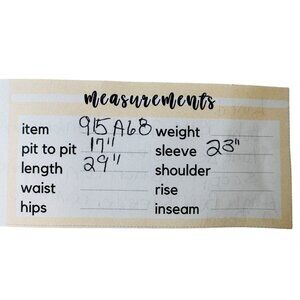 measurements
item 915A68 weight
pit to pit 17" sleeve 23"
length 29" shoulder
waist rise
hips inseam